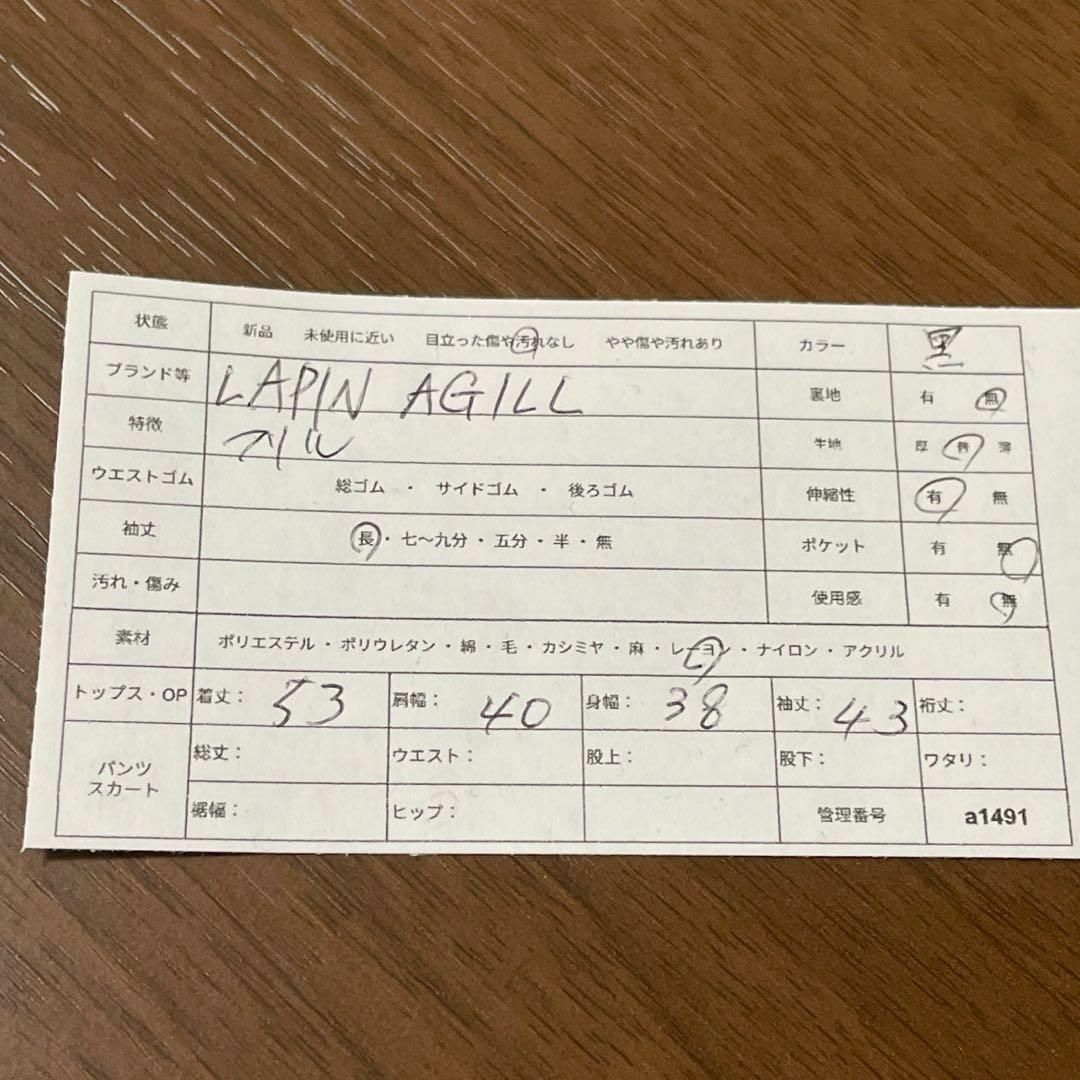 状態 新品 未使用に近い 目立った傷や汚れなし やや傷や汚れあり カラー 黒
ブランド等 LAPIN AGILL 裏地 有 無
特徴 フリル 生地 厚 普 薄
ウエストゴム 総ゴム ・ サイドゴム ・ 後ろゴム 伸縮性 有 無
袖丈 長・七〜九分・五分・半・無 ポケット 有 無
汚れ・傷み 使用感 有 無
素材 ポリエステル・ポリウレタン・綿・毛・カシミヤ・麻・レーヨン・ナイロン・アクリル
トップス・OP 着丈: 53 肩幅: 40 身幅: 38 袖丈: 43 裄丈:
パンツ スカート 総丈: ウエスト: 股上: 股下: ワタリ:
裾幅: ヒップ: 管理番号 a1491